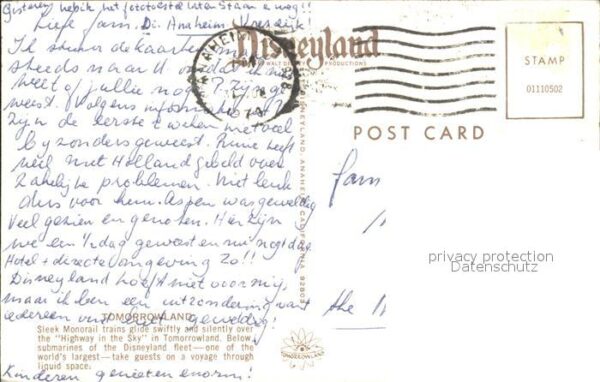 Gisteren heb ik het fototoestel laten staan e weg!!
Lieve fam. Di. Anaheim
Ik stuur de kaarten
steeds naar U omdat ik niet
weet of jullie nog
weest. Volgens
zijn de eerste 2 weken niet veel
bijzonders geweest. heeft
veel met Holland gebeld over
zakelijke problemen. Niet leuk
dus voor hem. Aspen was geweldig
veel gezien en genoten. Hier zijn
we een ½ dag geweest en
Hotel + directe omgeving Zo!!
Disneyland hoeft niet voor mij,
maar ik ben een uitzondering want
iedereen vindt het geweldig!
Kinderen genieten enorm!
Disneyland
WALT DISNEY PRODUCTIONS
ANAHEIM
DISNEYLAND, ANAHEIM, CALIFORNIA 92803
POST CARD
STAMP
01110502
fam
the
privacy protection
Datenschutz
TOMORROWLAND
Sleek Monorail trains glide swiftly and silently over
the "Highway in the Sky" in Tomorrowland. Below
submarines of the Disneyland fleet—one of the
world's largest—take guests on a voyage through
liquid space.
TOMORROWLAND